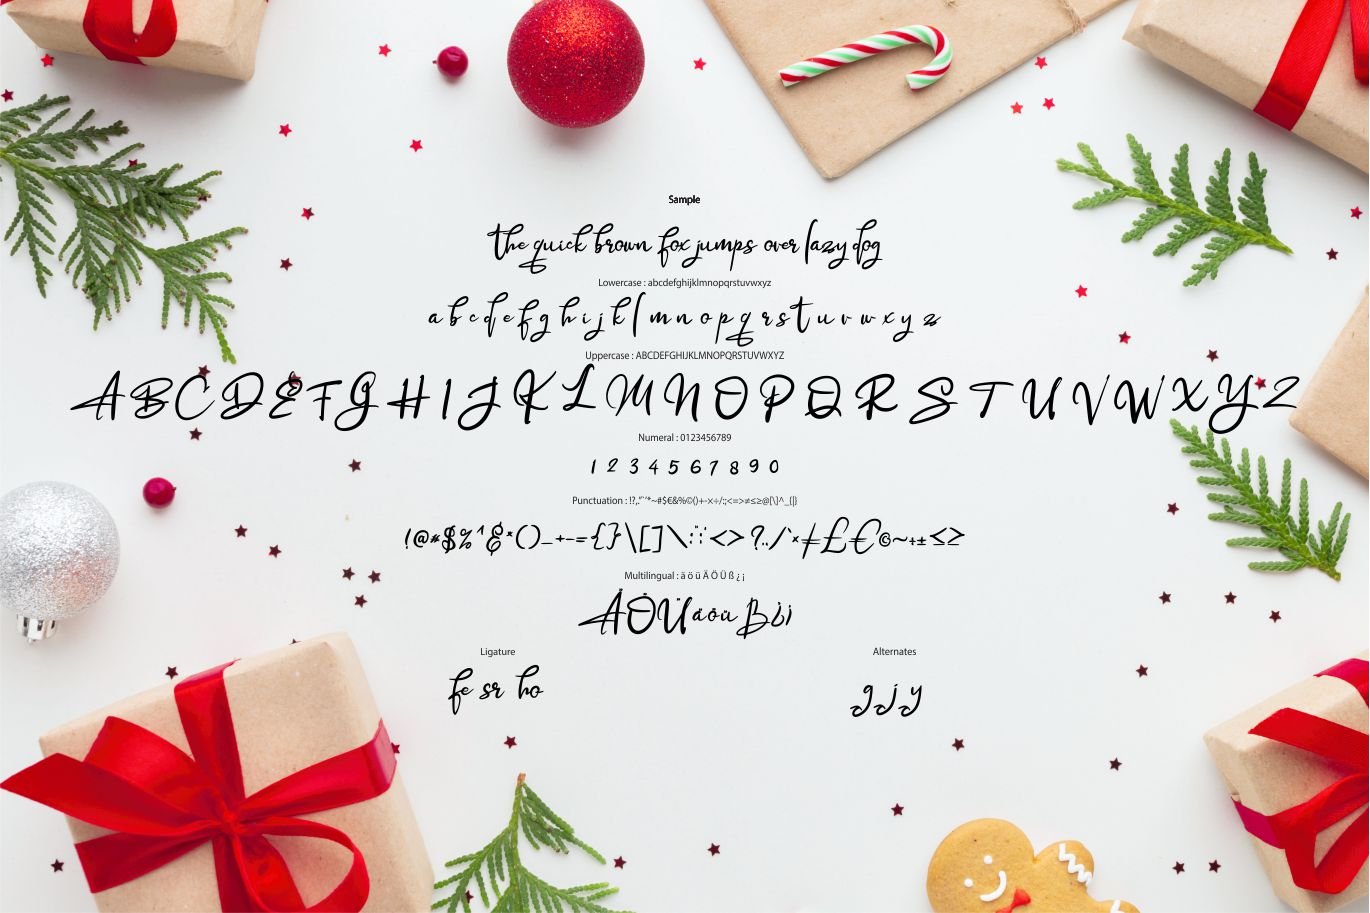 Sample
the quick brown fox jumps over lazy dog
Lowercase : abcdefghijklmnopqrstuvwxyz
a b c d e f g h i j k l m n o p q r s t u v w x y z
Uppercase : ABCDEFGHIJKLMNOPQRSTUVWXYZ
A B C D E F G H I J K L M N O P Q R S T U V W X Y Z
Numeral : 0123456789
1 2 3 4 5 6 7 8 9 0
Punctuation : !?,."˝´*~#$€&%©()+-×÷/:;<=>≠≤≥@[\]^_{|}
!@*$%^&*()_+-={}\[]\:;<>?../`×≠£€©~÷±≤≥
Multilingual : ä ö ü Ä Ö Ü ß ¿ ¡
ÄÖÜäöüß¿¡
Ligature
fe sr ho
Alternates
g j y